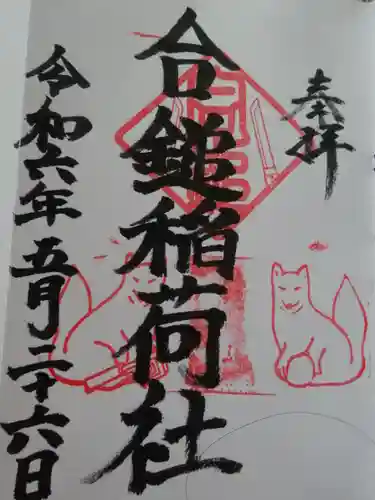 奉拝
合鎚稲荷社
令和六年五月二十六日